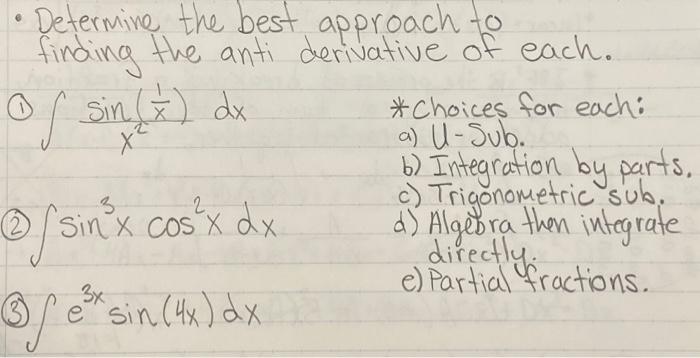 • Determine the best approach to
finding the anti derivative of each.
① ∫ sin(1/x)/x² dx
② ∫ sin³x cos²x dx
③ ∫ e^3x sin(4x) dx
*Choices for each:
a) U-Sub.
b) Integration by parts.
c) Trigonometric sub.
d) Algebra then integrate
directly.
e) Partial fractions.